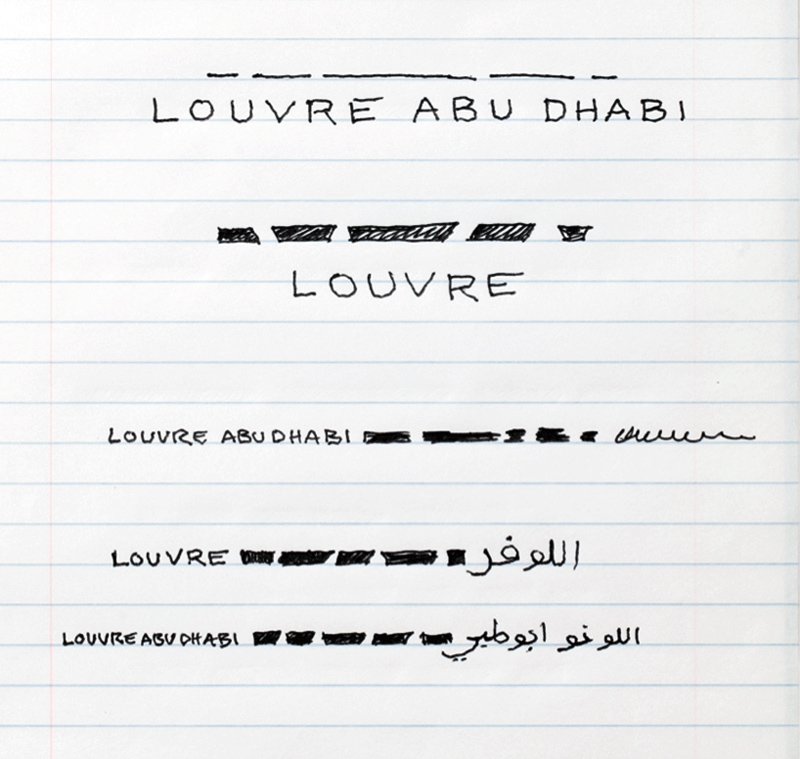 LOUVRE ABU DHABI
LOUVRE
LOUVRE ABU DHABI
LOUVRE اللوفر
LOUVRE ABU DHABI اللوفو ابوظبي